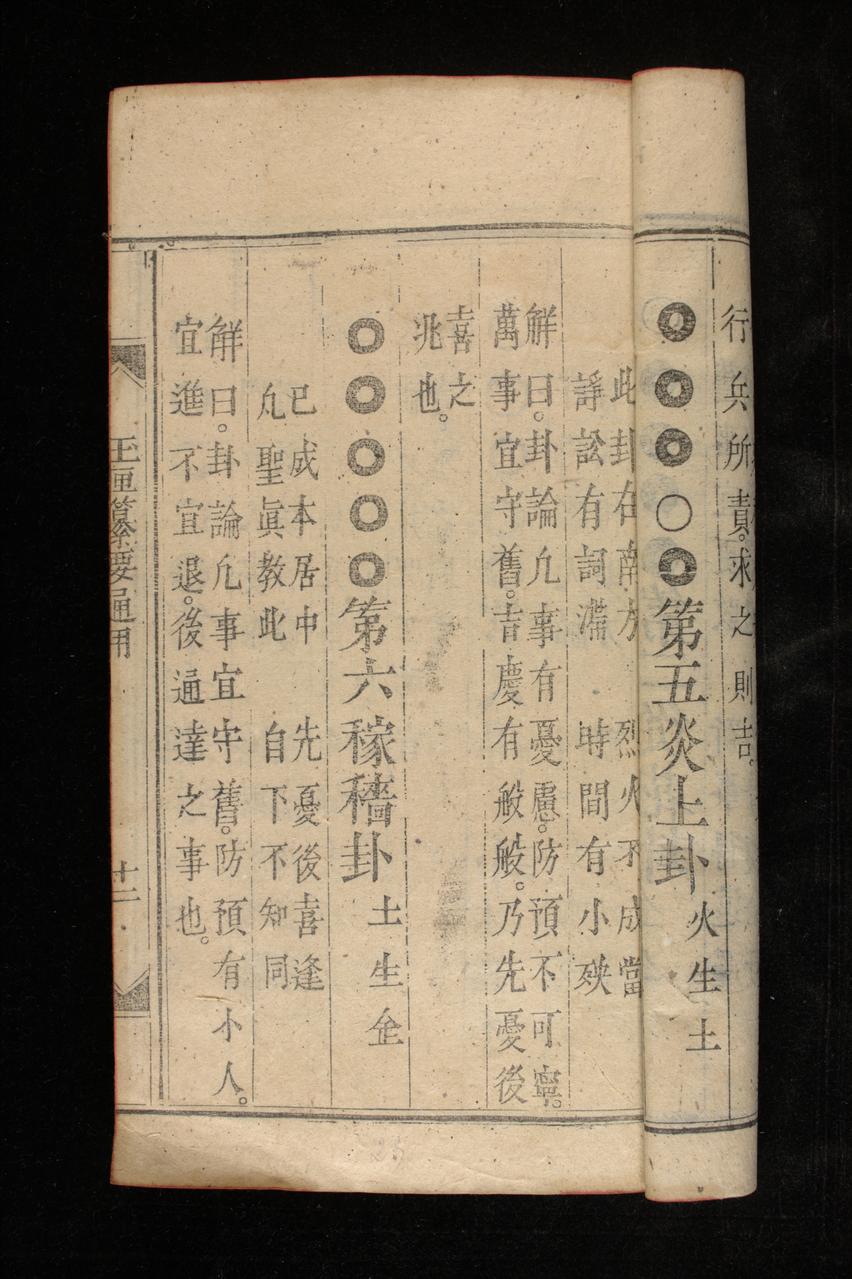 行兵所責。求之則吉。
○第五炎上卦 火生土
此卦在南方 烈火不成當
諍訟有詞滯 時間有小殃
解曰。卦論凢事有憂慮。防預不可寧。
萬事宜守舊。吉慶有般般。乃先憂後
喜之
兆也。
第六稼穡卦 土生金
已成本居中 先憂後喜逢
凢聖眞教此 自下不知同
解曰。卦論凢事宜守舊。防預有小人。
宜進不宜退。後通達之事也。
玉匣纂要通用
十二